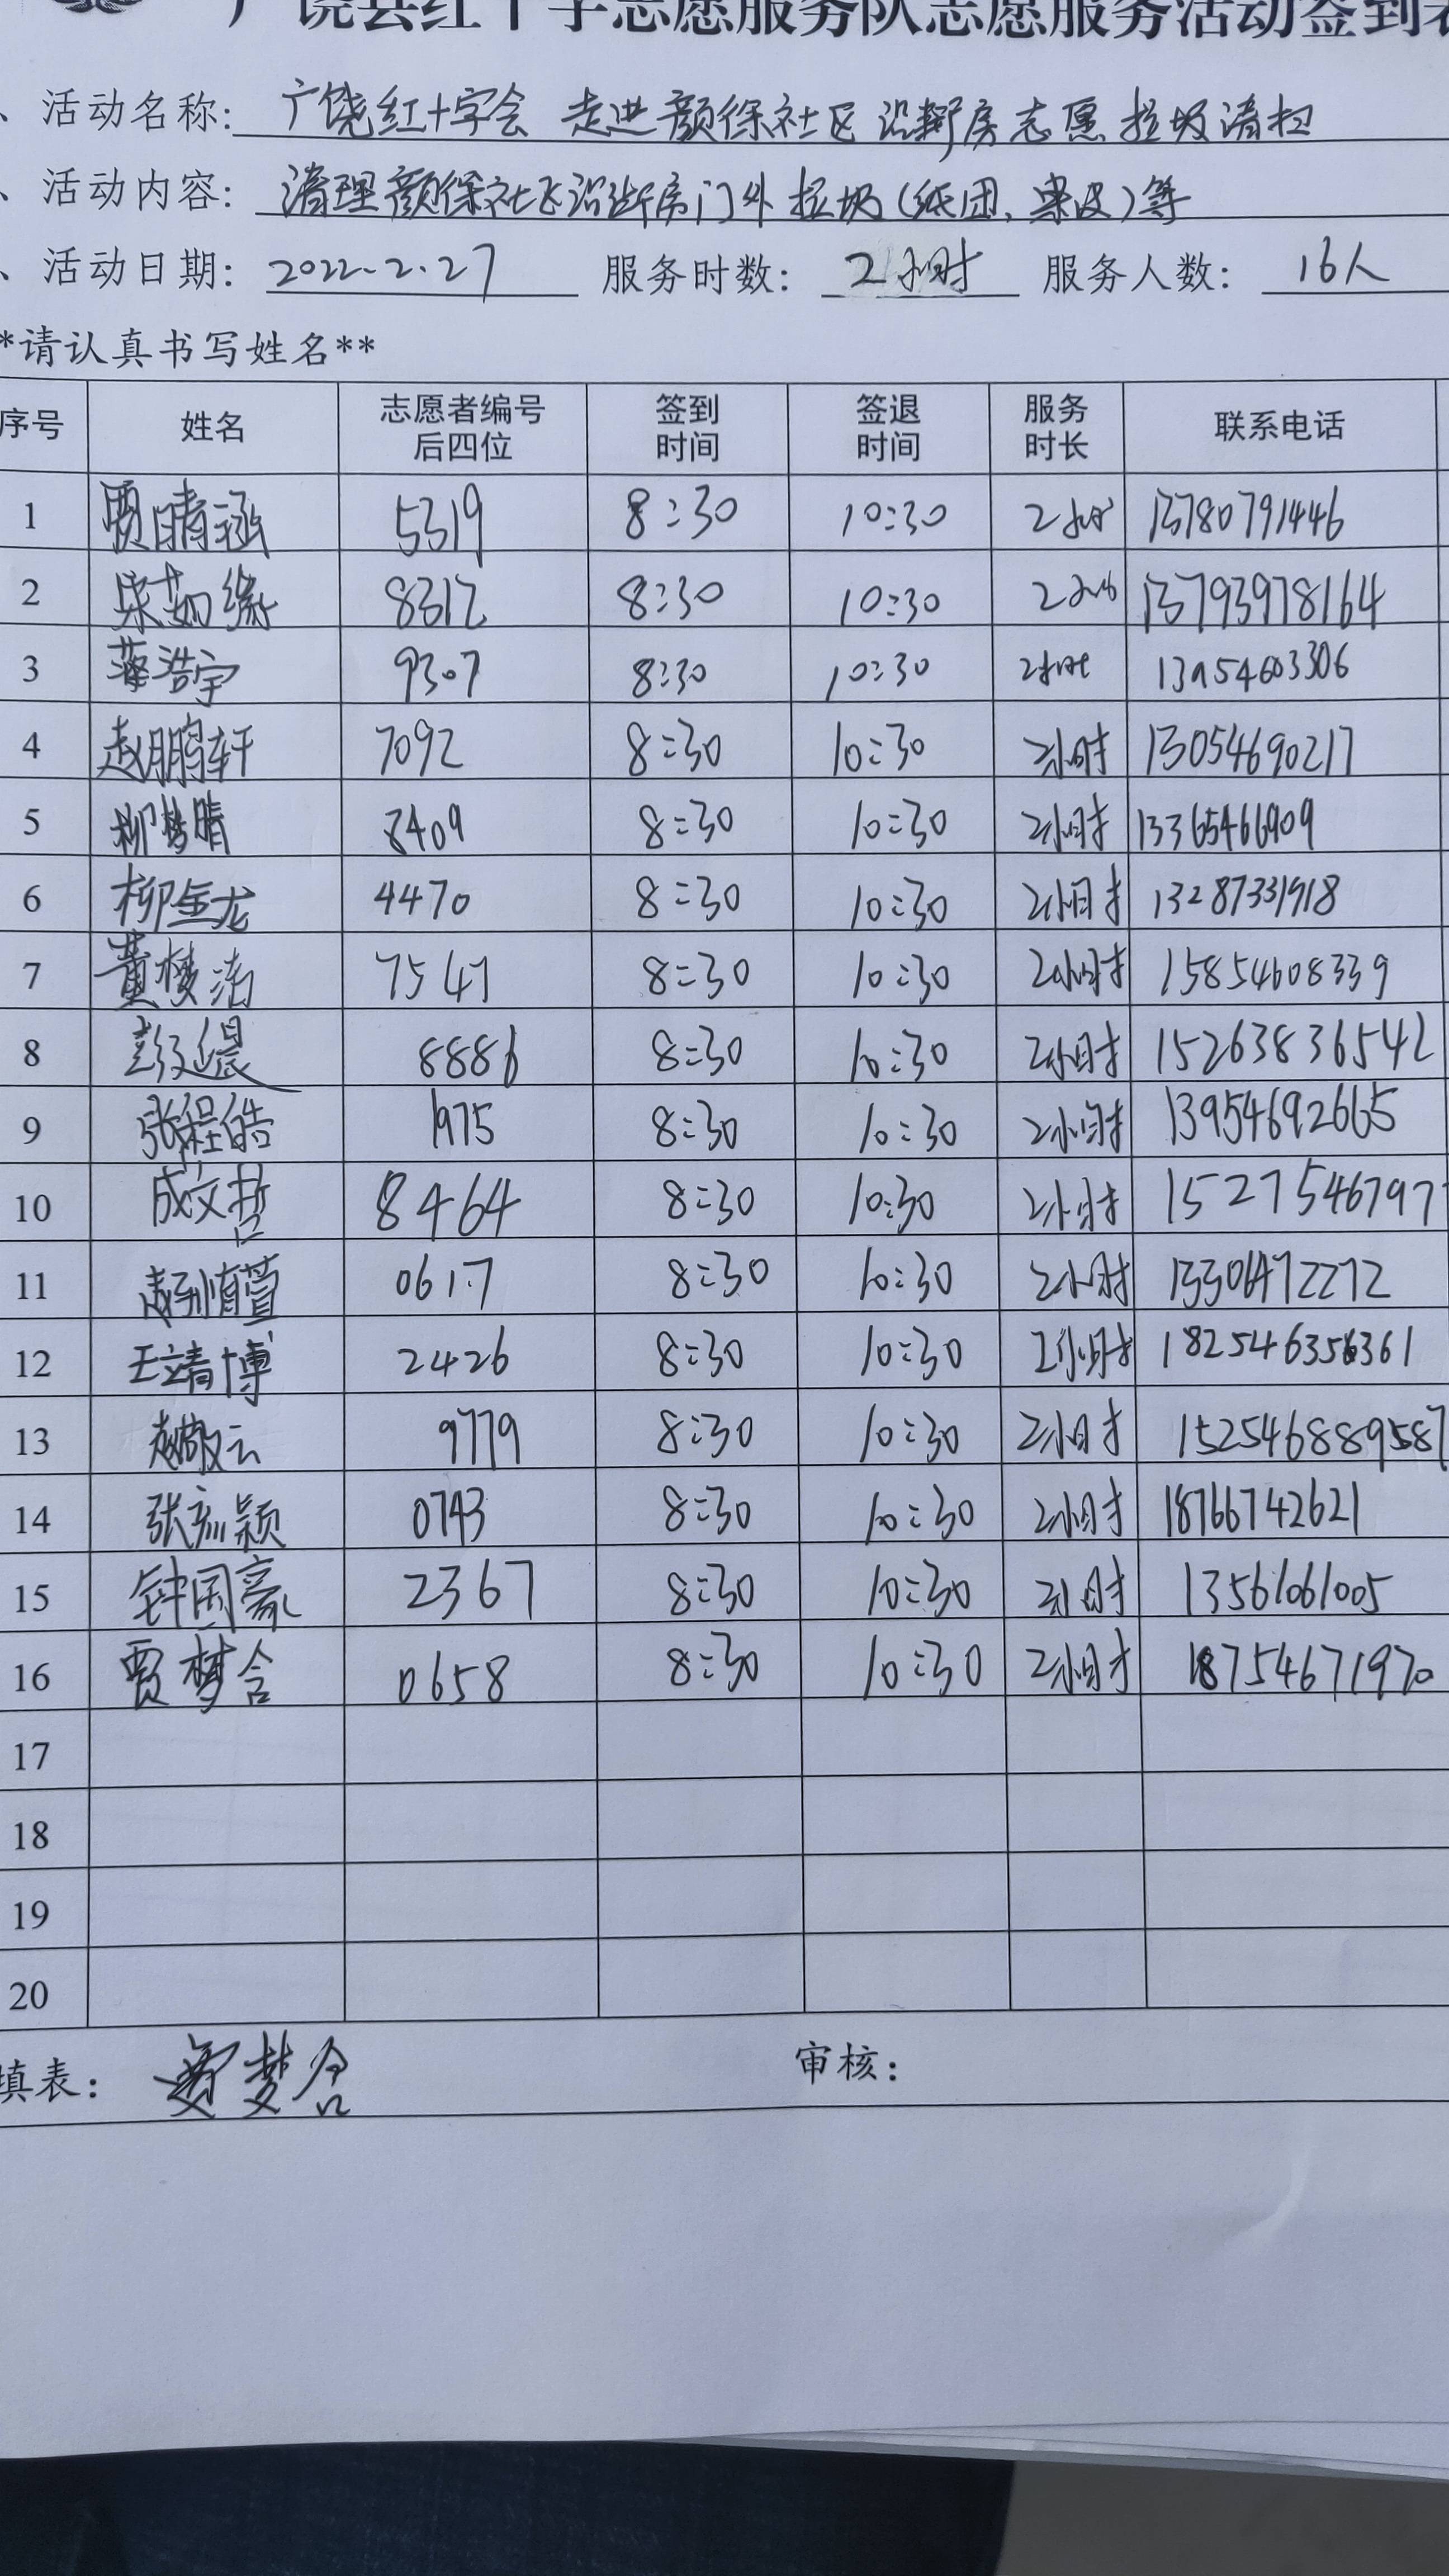 广饶县红十字志愿服务队志愿服务活动签到表
、活动名称: 广饶红十字会 走进颜徐社区沿街房志愿垃圾清扫
、活动内容: 清理颜徐社区沿街房门外垃圾(纸团、果皮)等
、活动日期: 2022.2.27 服务时数: 2小时 服务人数: 16人
*请认真书写姓名**
序号 姓名 志愿者编号后四位 签到时间 签退时间 服务时长 联系电话
1 贾晴涵 5319 8:30 10:30 2小时 13780791446
2 柴茹缘 8312 8:30 10:30 2小时 13793978164
3 蒋浩宇 9307 8:30 10:30 2小时 13954603306
4 赵鹏轩 7092 8:30 10:30 2小时 13054690217
5 柳梦晴 8409 8:30 10:30 2小时 13365466909
6 柳金龙 4470 8:30 10:30 2小时 13287331918
7 黄梦洁 7547 8:30 10:30 2小时 15854608339
8 8886 8:30 10:30 2小时 15263836542
9 张程皓 1975 8:30 10:30 2小时 13954692665
10 成文哲 8464 8:30 10:30 2小时 15275467977
11 0617 8:30 10:30 2小时 13306472272
12 王靖博 2426 8:30 10:30 2小时
13 赵敬云 9779 8:30 10:30 2小时 152546889587
14 张颖 0743 8:30 10:30 2小时 18766742621
15 钟国豪 2367 8:30 10:30 2小时 13561061005
16 贾梦含 0658 8:30 10:30 2小时 18754671970
17
18
19
20
填表: 贾梦含 审核: